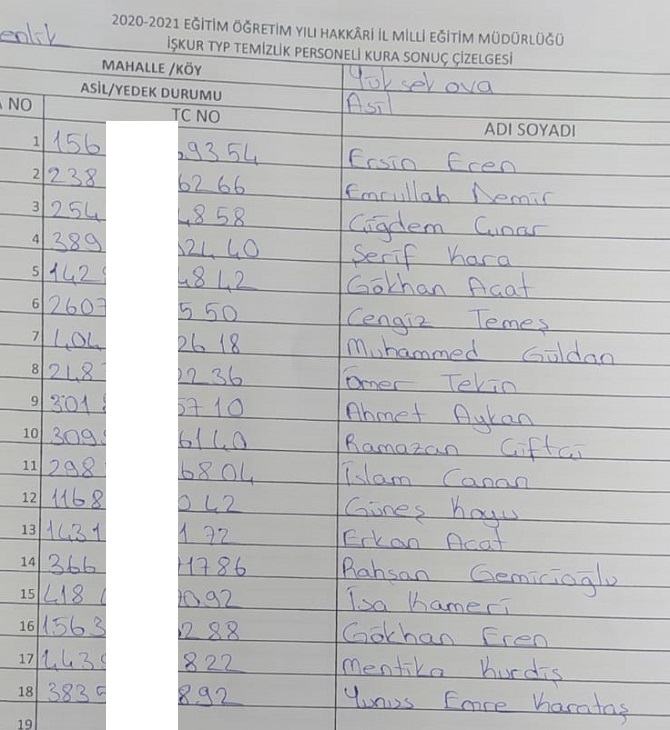 2020-2021 EĞİTİM ÖĞRETİM YILI HAKKÂRİ İL MİLLİ EĞİTİM MÜDÜRLÜĞÜ
İŞKUR TYP TEMİZLİK PERSONELİ KURA SONUÇ ÇİZELGESİ
MAHALLE /KÖY Yüksekova
ASİL/YEDEK DURUMU Asil
NO TC NO ADI SOYADI
1 156 9354 Ersin Eren
2 238 6266 Emrullah Demir
3 254 4858 Çiğdem Çınar
4 389 2440 Şerif Kara
5 142 4842 Gökhan Acat
6 2607 550 Cengiz Temeş
7 404 2618 Muhammed Güldan
8 248 2236 Ömer Tekin
9 301 5710 Ahmet Aykan
10 309 6140 Ramazan Çiftçi
11 298 6804 İslam Canan
12 1168 042 Güneş Kayu
13 1431 172 Erkan Acat
14 366 1786 Rahşan Gemicioğlu
15 418 092 İsa Kameri
16 1563 288 Gökhan Eren
17 443 822 Mentika Kurdiş
18 383 892 Yunus Emre Karataş
19